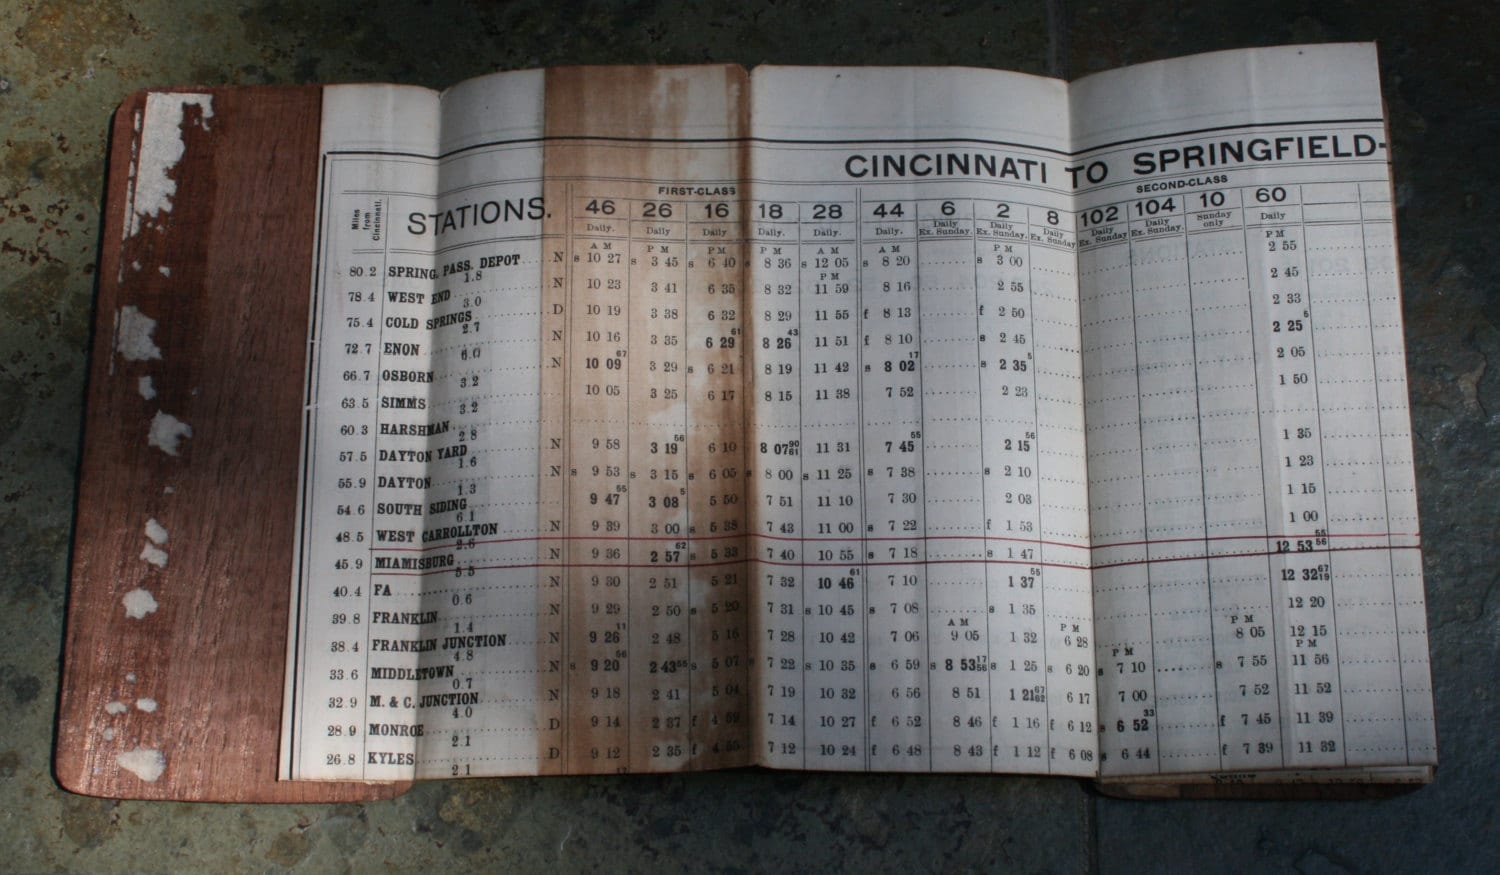 CINCINNATI TO SPRINGFIELD-
FIRST-CLASS SECOND-CLASS
Miles from Cincinnati. STATIONS. 46 26 16 18 28 44 6 2 8 102 104 10 60
Daily. Daily Daily Daily. Daily. Daily. Daily Ex. Sunday. Daily Ex. Sunday. Daily Ex. Sunday Daily Ex. Sunday Daily Ex. Sunday. Sunday only Daily
A M P M P M P M A M A M P M P M
80.2 SPRING. PASS. DEPOT N s 10 27 s 3 45 s 6 40 8 36 s 12 05 s 8 20 s 3 00 2 55
1.8 P M
78.4 WEST END N 10 23 3 41 6 35 8 32 11 59 8 16 2 55 2 45
3.0
75.4 COLD SPRINGS D 10 19 3 38 6 32 8 29 11 55 f 8 13 f 2 50 2 33
2.7
72.7 ENON N 10 16 3 35 6 29 61 8 26 43 11 51 f 8 10 s 2 45 2 25 5
6.0
66.7 OSBORN N 10 09 67 3 29 s 6 21 8 19 11 42 s 8 02 17 s 2 35 5 2 05
3.2
63.5 SIMMS 10 05 3 25 6 17 8 15 11 38 7 52 2 23 1 50
3.2
60.3 HARSHMAN
2.8
57.5 DAYTON YARD N 9 58 3 19 56 6 10 8 07 90 81 11 31 7 45 55 2 15 56 1 35
1.6
55.9 DAYTON N s 9 53 s 3 15 s 6 05 s 8 00 s 11 25 s 7 38 s 2 10 1 23
1.3
54.6 SOUTH SIDING 9 47 55 3 08 5 5 50 7 51 11 10 7 30 2 03 1 15
6.1
48.5 WEST CARROLLTON N 9 39 3 00 s 5 38 7 43 11 00 s 7 22 f 1 53 1 00
2.6
45.9 MIAMISBURG N 9 36 2 57 62 s 5 33 7 40 10 55 s 7 18 s 1 47 12 53 55 56
5.5
40.4 FA N 9 30 2 51 5 21 7 32 10 46 61 7 10 1 37 55 12 32 67 19
0.6
39.8 FRANKLIN N 9 29 2 50 s 5 20 7 31 s 10 45 s 7 08 s 1 35 12 20
1.4 A M P M P M
38.4 FRANKLIN JUNCTION N 9 26 11 2 48 5 16 7 28 10 42 7 06 9 05 1 32 6 28 8 05 12 15
4.8 P M P M
33.6 MIDDLETOWN N s 9 20 56 2 43 55 s 5 07 7 22 s 10 35 s 6 59 s 8 53 17 56 s 1 25 s 6 20 s 7 10 s 7 55 11 56
0.7
32.9 M. & C. JUNCTION N 9 18 2 41 5 04 7 19 10 32 6 56 8 51 1 21 67 62 6 17 7 00 7 52 11 52
4.0
28.9 MONROE D 9 14 2 37 f 4 59 7 14 10 27 f 6 52 8 46 f 1 16 f 6 12 s 6 52 33 f 7 45 11 39
2.1
26.8 KYLES D 9 12 2 35 f 4 55 7 12 10 24 f 6 48 8 43 f 1 12 f 6 08 s 6 44 f 7 39 11 32
2.1